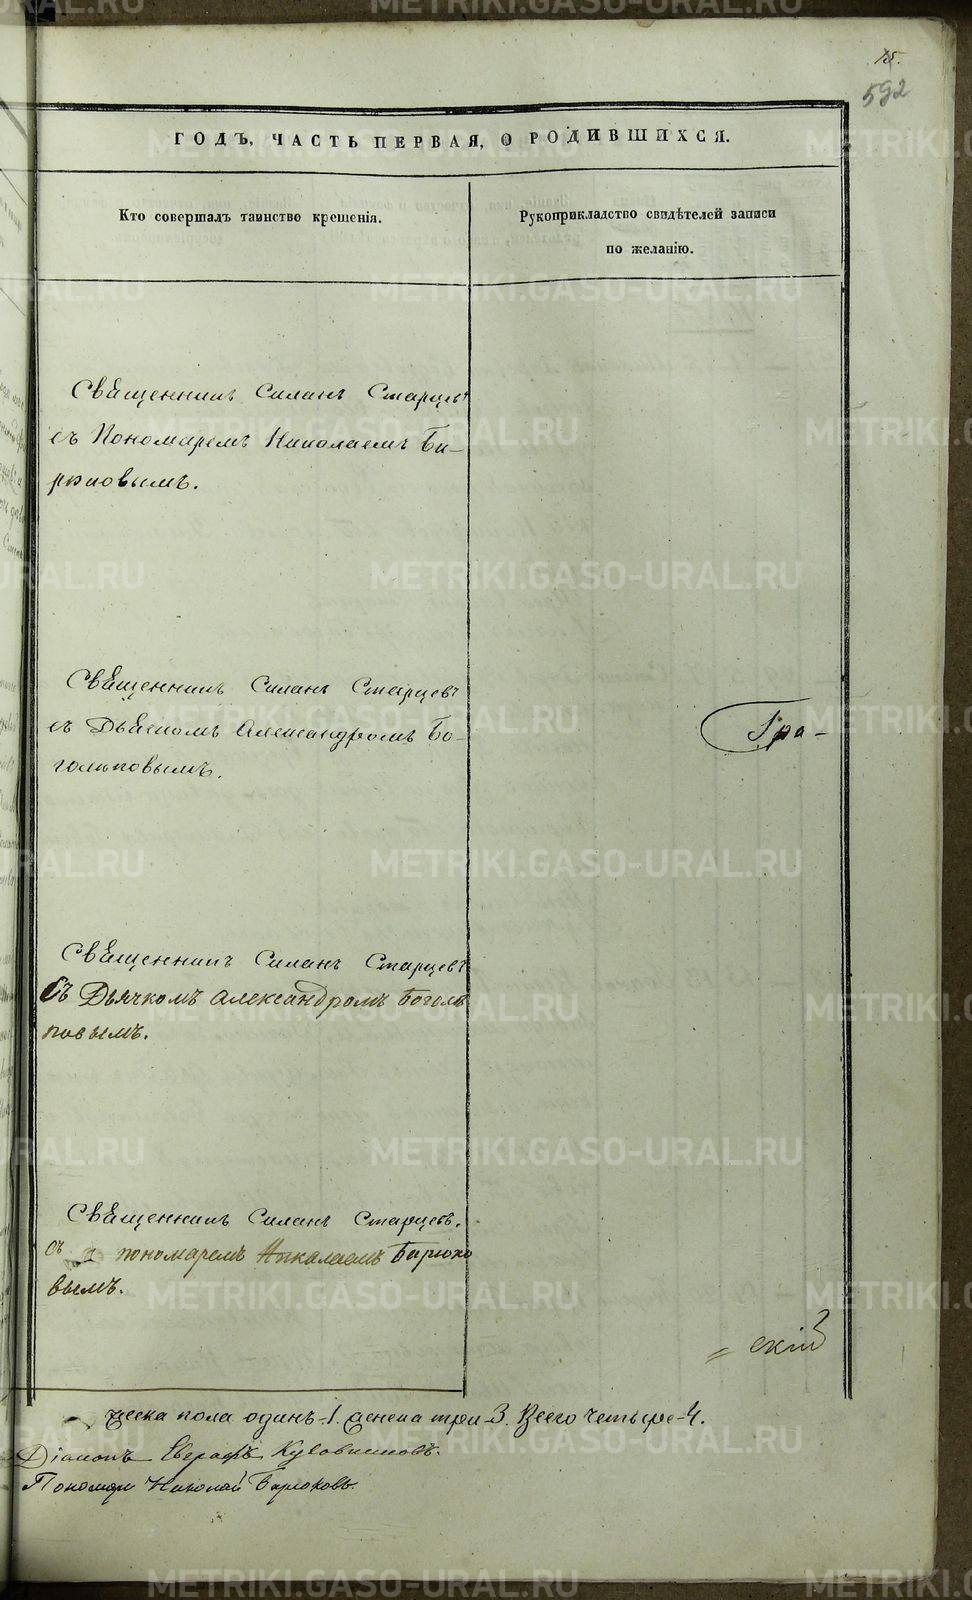 15.
592
ГОДЪ, ЧАСТЬ ПЕРВАЯ, О РОДИВШИХСЯ.
Кто совершалъ таинство крещенія.
Рукоприкладство свидѣтелей записи
по желанію.
Священникъ Силанъ Старцевъ
съ Пономаремъ Николаемъ Би-
рюковымъ.
Священникъ Силанъ Старцевъ
съ Дьячкомъ Александромъ Бо-
голѣповымъ.
Гра-
Священникъ Силанъ Старцевъ
Съ Дьячкомъ Александромъ Боголѣ
повымъ.
Священникъ Силанъ Старцевъ.
съ пономаремъ Николаемъ Бирюко
вымъ.
скій
ческа пола одинъ-1. женска три-3. Всего четыре-4.
Діаконъ Евграфъ
Пономарь Николай Бирюковъ.
METRIKI.GASO-URAL.RU